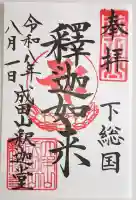 奉拝
下総国
釋迦如来
令和八年
成田山釈迦堂
八月一日